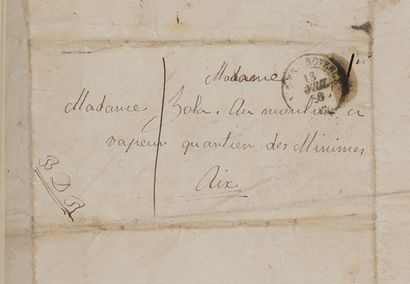 Madame
Madame Zola. Au moulin a
vapeur quartier des Minimes
Aix
B D R
13
AVRIL
58